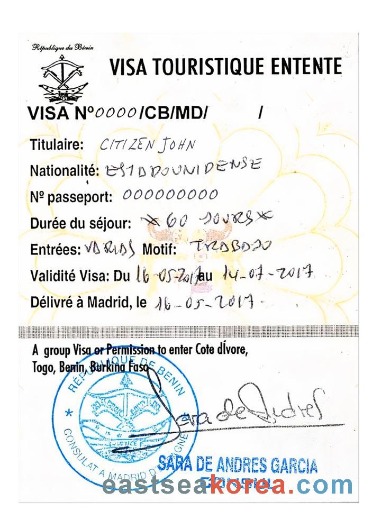 République du Bénin
VISA TOURISTIQUE ENTENTE
VISA Nº0000/CB/MD/ /
Titulaire: CITIZEN JOHN
Nationalité: ESTADOUNIDENSE
Nº passeport: 000000000
Durée du séjour: * 60 JOURS *
Entrées: VARIAS Motif: TRABAJO
Validité Visa: Du 16-05-2017 au 14-07-2017
Délivré à Madrid, le 16-05-2017.
A group Visa or Permission to enter Cote dÍvore,
Togo, Benin, Burkina Faso
RÉPUBLIQUE DU BENIN
CONSULAT A MADRID
Sara de Andres
SARA DE ANDRES GARCIA
eastseakorea.com